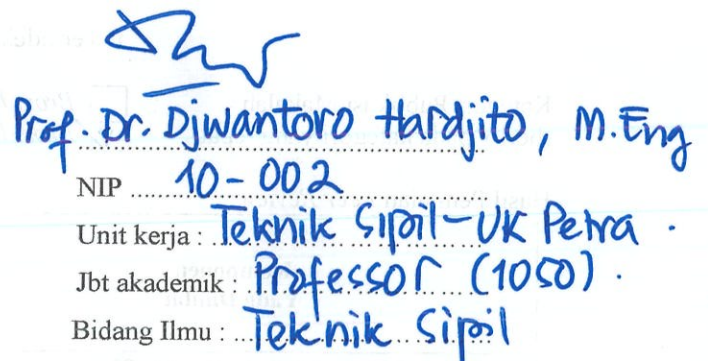 Prof. Dr. Djwantoro Hardjito, M.Eng
NIP 10-002
Unit kerja : Teknik Sipil-UK Petra.
Jbt akademik : Professor (1050).
Bidang Ilmu : Teknik Sipil